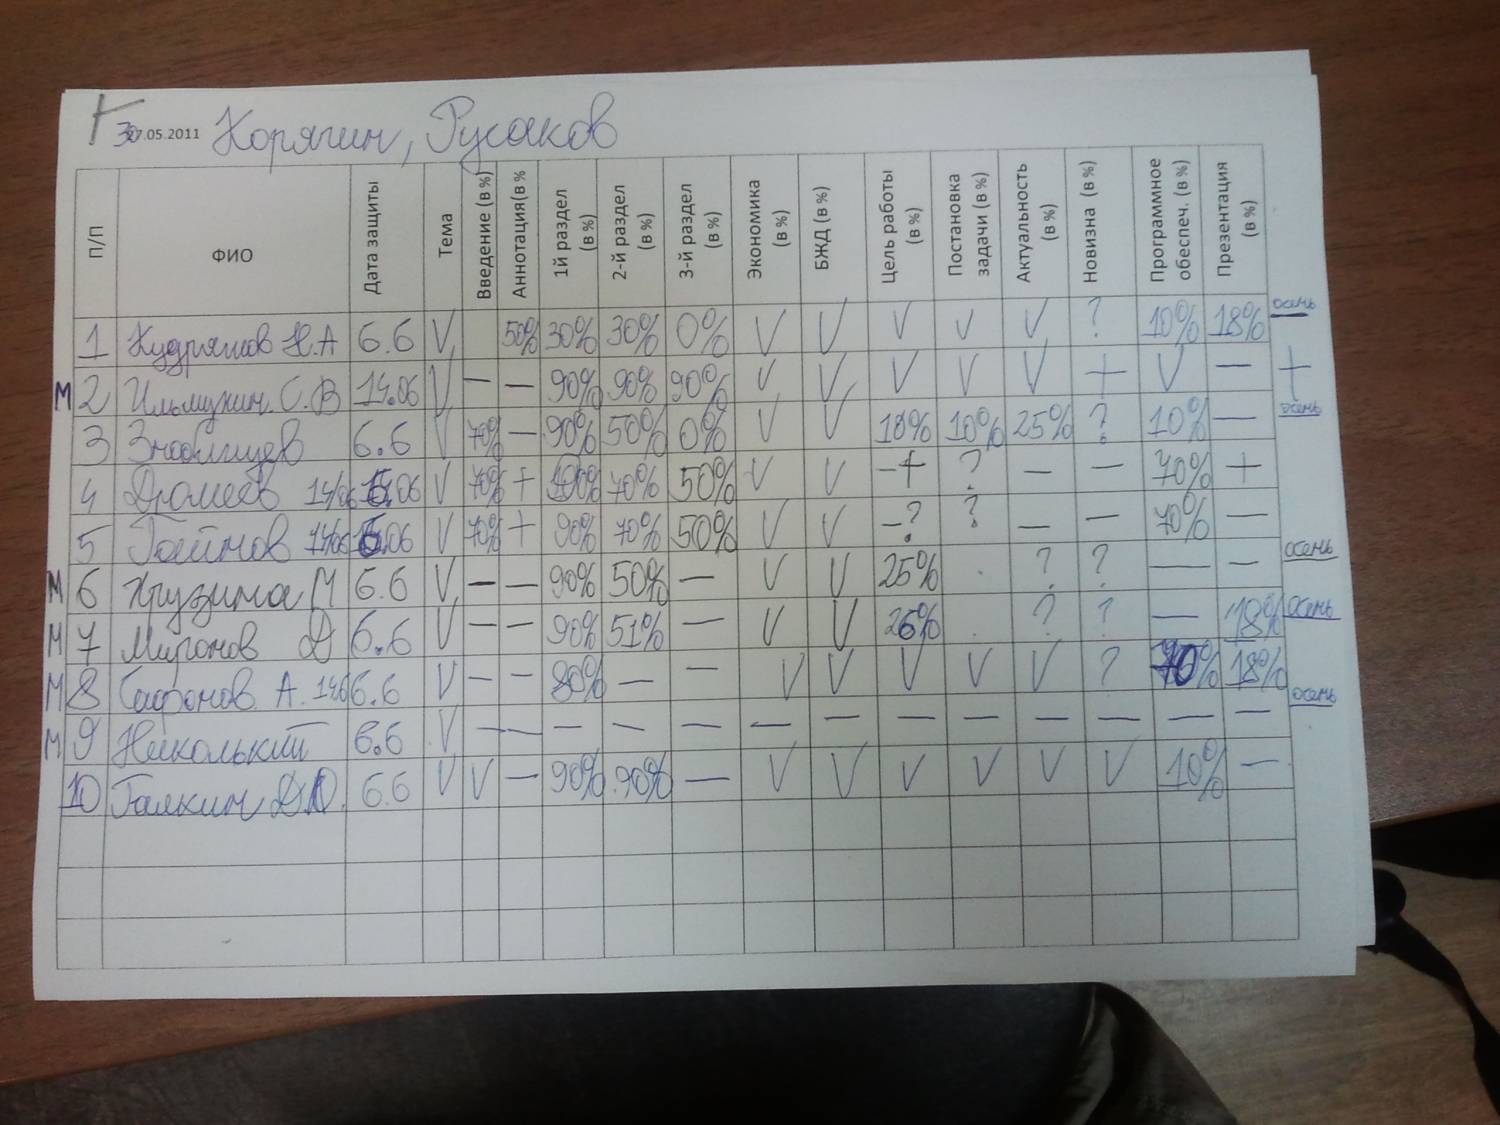 30.05.2011 Корягин, Русаков
П/П ФИО Дата защиты Тема Введение (в %) Аннотация(в % 1й раздел (в %) 2-й раздел (в %) 3-й раздел (в %) Экономика (в %) БЖД (в %) Цель работы (в %) Постановка задачи (в %) Актуальность (в %) Новизна (в %) Программное обеспеч. (в %) Презентация (в %)
осень
1 Кудряшов Н.А 6.6 V 50% 30% 30% 0% V V V V V ? 10% 18%
М 2 Ильмукин. С.В 14.06 V — — 90% 90% 90% V V V V V + V — +
осень
3 6.6 V 70% — 90% 50% 0% V V 10% 10% 25% ? 10% —
4 Дромеев 14/06 V 70% + 100% 70% 50% V V —+ ? — — 70% +
5 Гайнов 14/06 V 70% + 90% 70% 50% V V —? ? — — 70% —
осень
М 6 Хрузина М 6.6 V — — 90% 50% — V V 25% . ? ? — —
осень
М 7 Миронов Д 6.6 V — — 90% 51% — V V 26% . ? ? — 18%
М 8 Сафонов А. 14.6 6.6 V — — 80% — — V V V V V ? 70% 18%
осень
М 9 Никольский 6.6 V — — — — — — — — — — — — —
10 Галкин Д.Ю. 6.6 V V — 90% 90% — V V V V V V 10% —